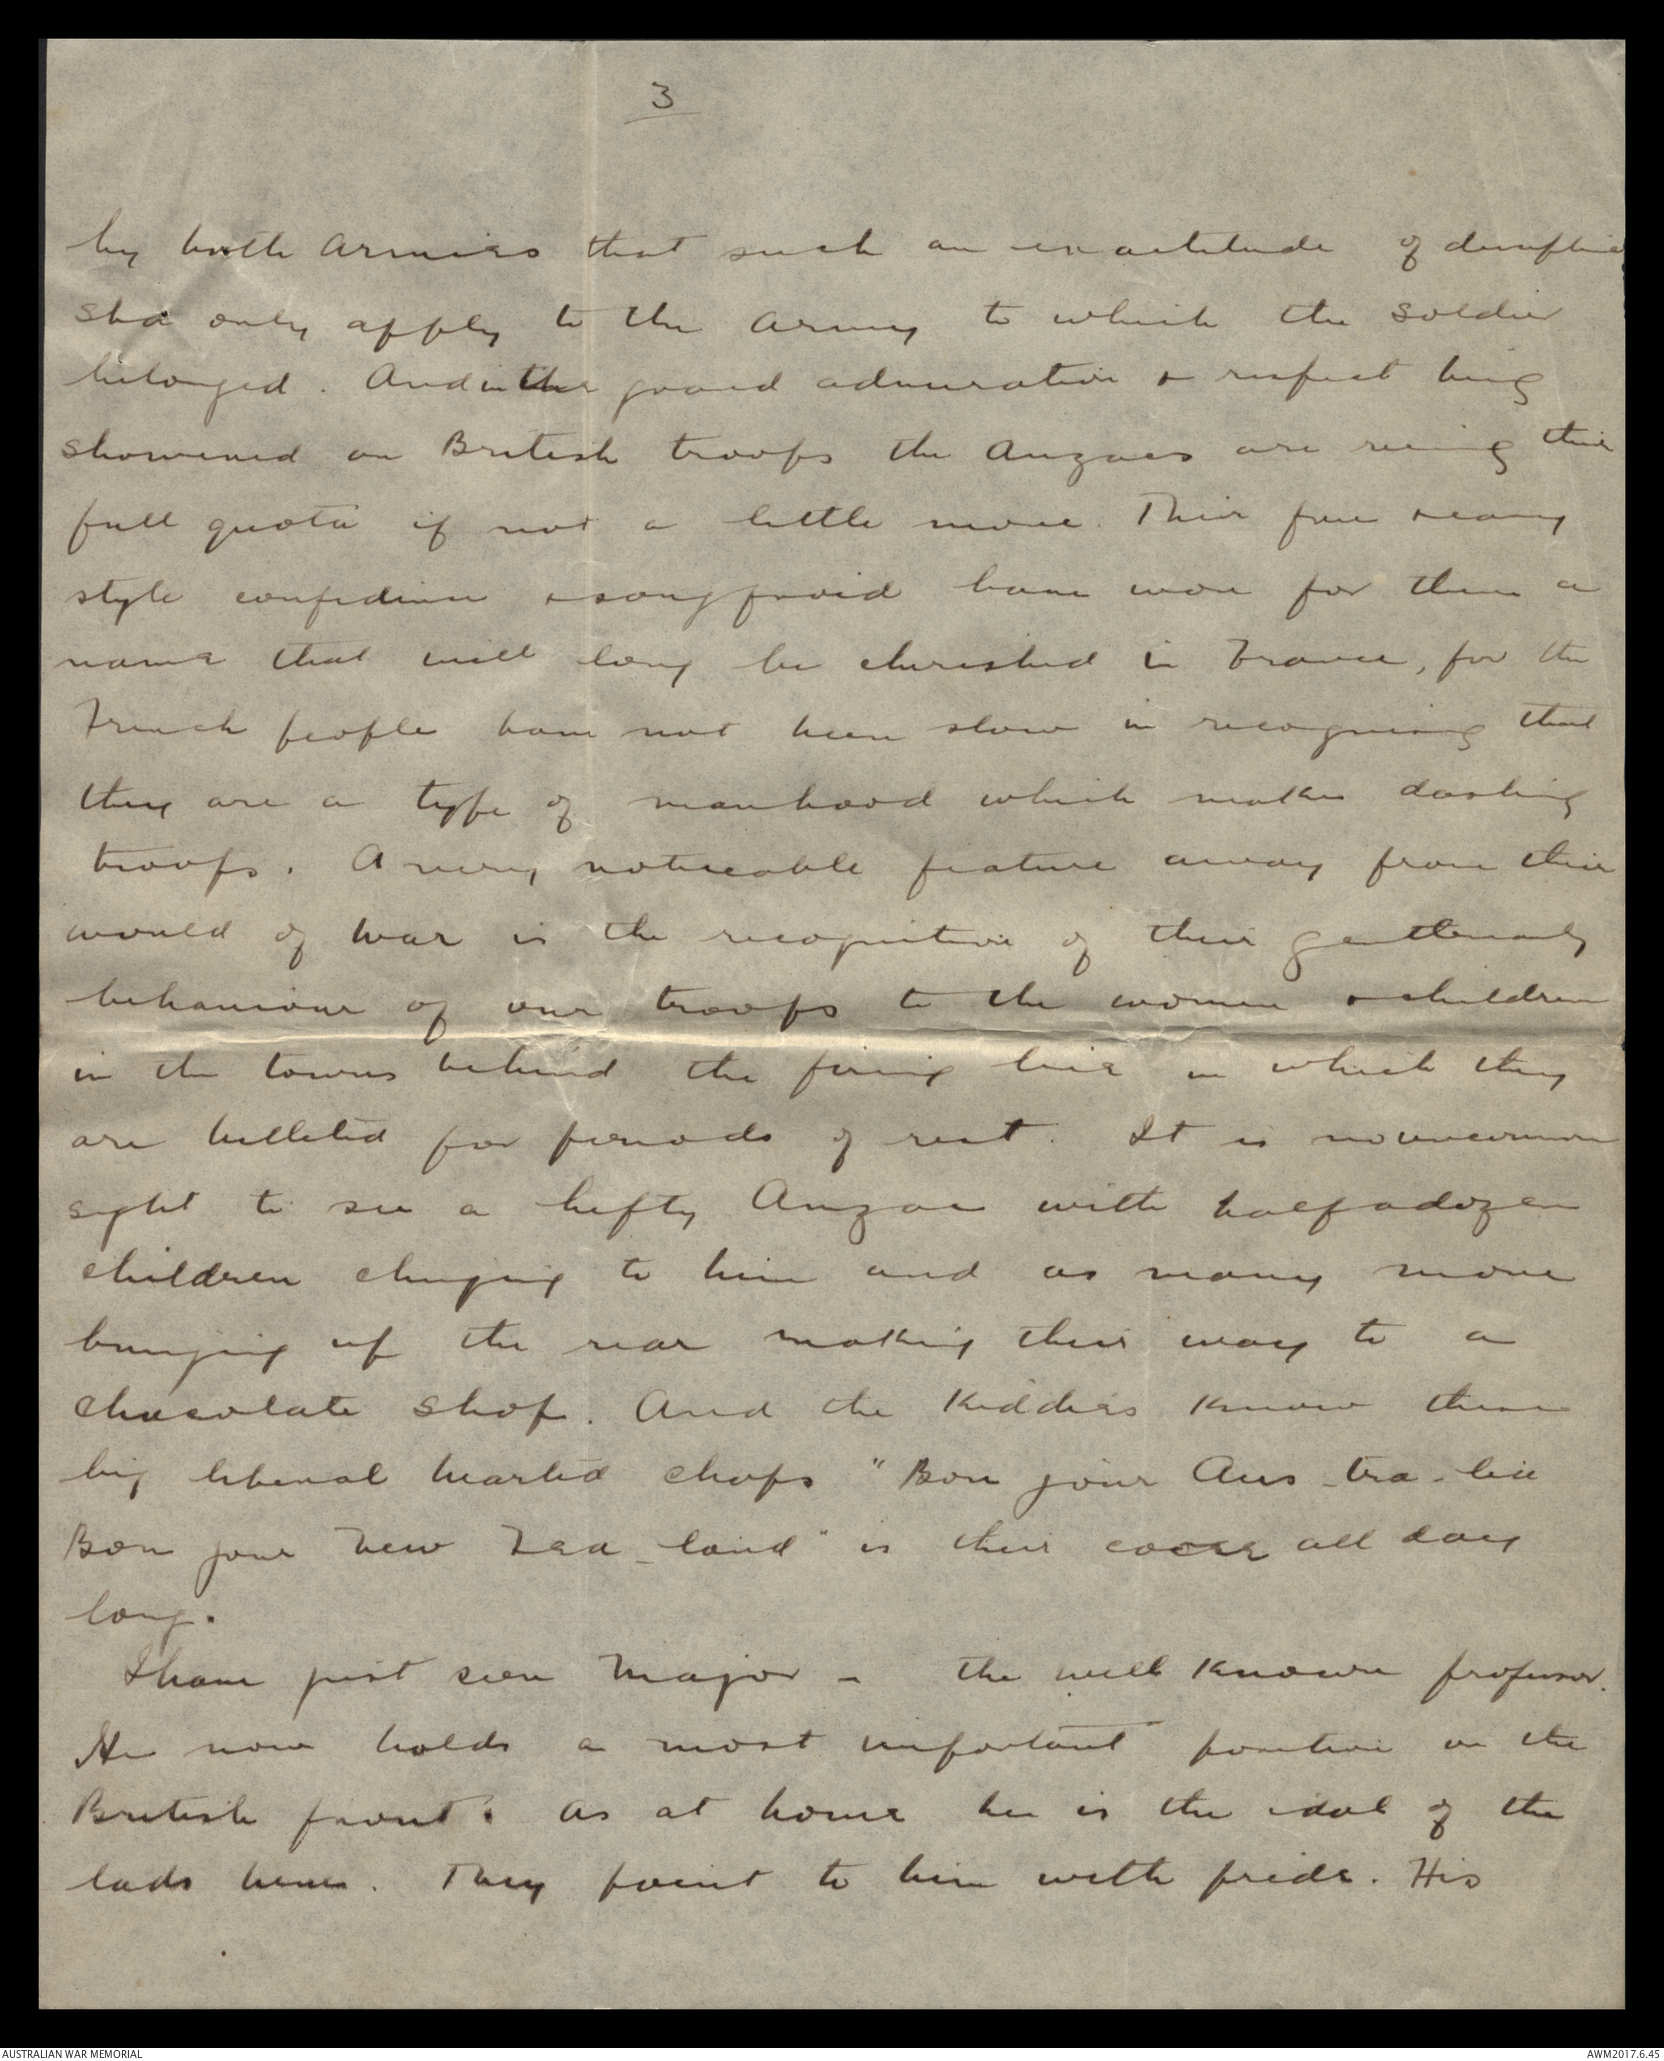 3
by both armies that such an exactitude of discipline
shd only apply to the army to which the soldier
belonged. And in the grand admiration & respect being
showered on British troops the Anzacs are recing their
full quota if not a little more. Their free & easy
style confidence & sang froid have won for them a
name that will long be cherished in France, for the
French people have not been slow in recognising that
they are a type of manhood which makes dashing
troops. A very noticeable feature away from this
world of war is the recognition of their gentlemanly
behaviour of our troops to the women & children
in the towns behind the firing line in which they
are billeted for periods of rest. It is no uncommon
sight to see a hefty Anzac with half a dozen
children clinging to him and as many more
bringing up the rear making their way to a
chocolate shop. And the kiddies know these
big liberal hearted chaps "Bon jour Aus-tra-lie
Bon jour New Zea-land" is their all day
long.
I have just seen Major - the well known professor.
He now holds a most important position on the
British front. As at home he is the idol of the
lads here. They point to him with pride. His
AUSTRALIAN WAR MEMORIAL
AWM2017.6.45